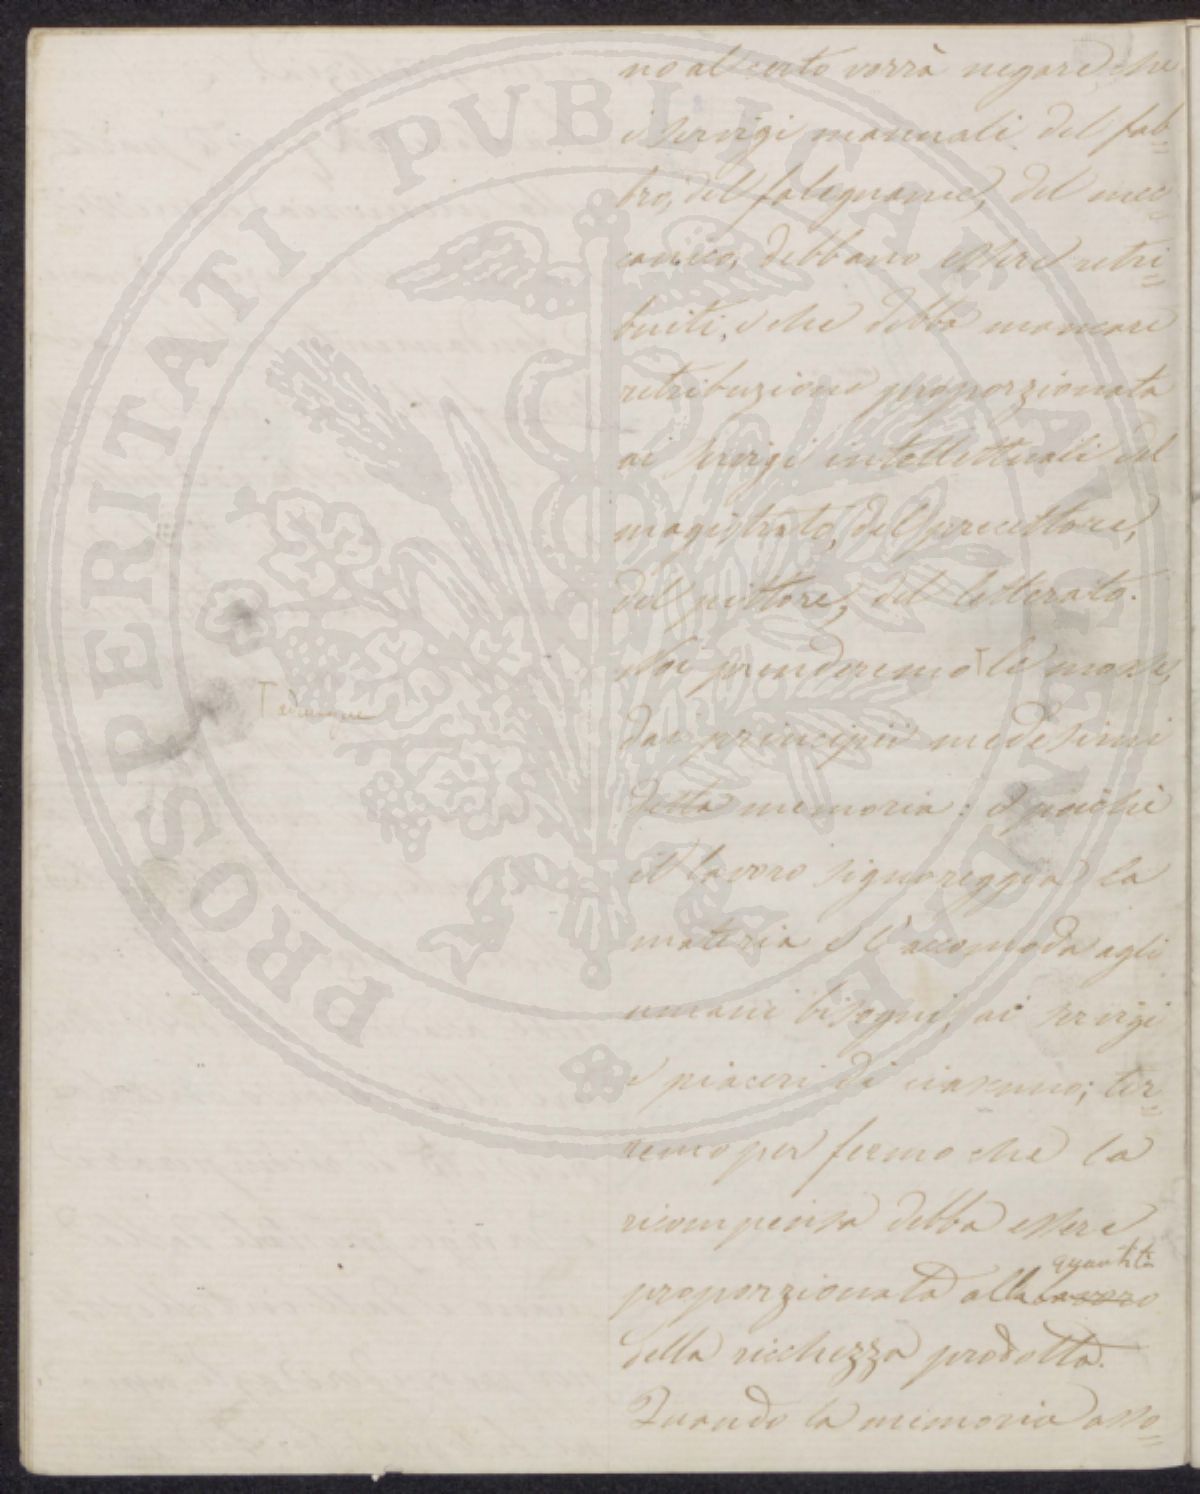 no al certo vorrà negare che
i servigi manuali del fab=
bro, del falegname, del mec=
canico, debbano essere retri=
buiti, e che debba mancare
retribuzione proporzionata
ai servigi intellettuali del
magistrato, del precettore,
del pittore, del letterato.
Noi prenderemo ⊤ le mosse,
⊤ adunque
dai principii medesimi
della memoria: e poichè
il lavoro signoreggia la
materia e l'accomoda agli
umani bisogni, ai servigi
e piaceri di ciascuno; ter=
remo per fermo che la
ricompensa debba essere
quantità
proporzionata alla lavoro
della ricchezza prodotta.
Quando la memoria asso=
PROSPERITATI PVBLICAE AVGENDAE